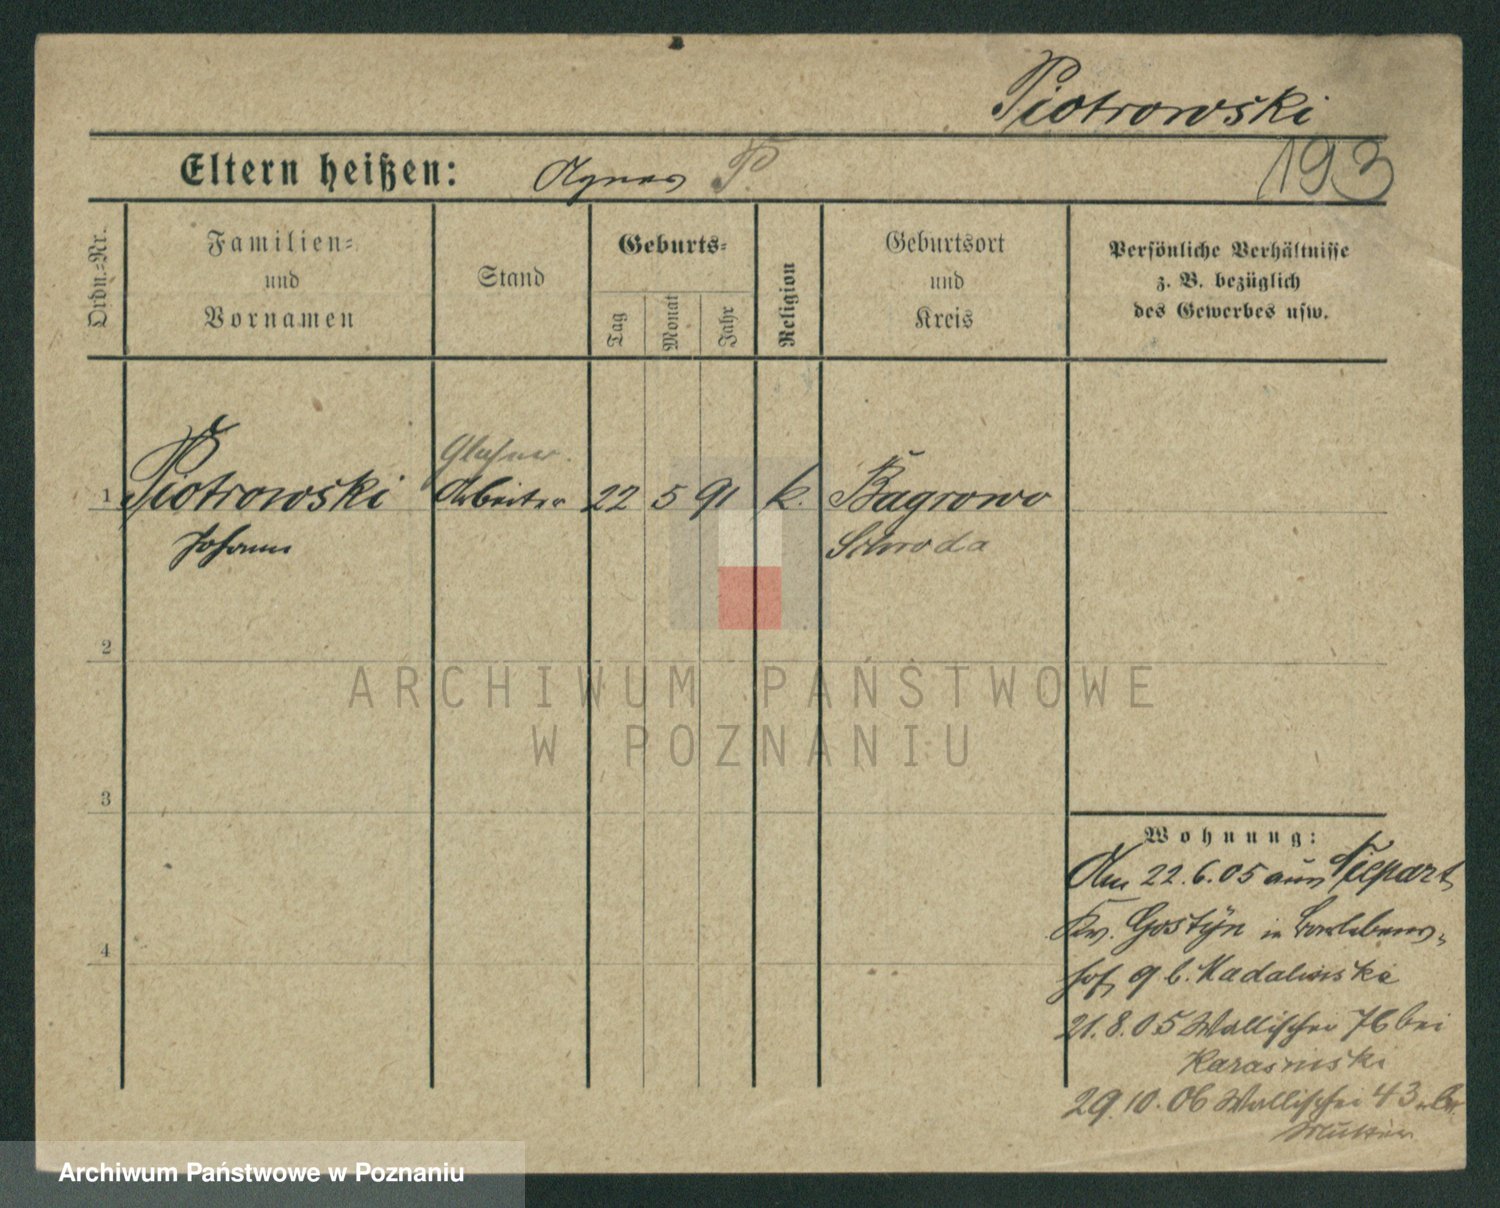 Piotrowski
193
Eltern heißen: Agnes P.
Ordn.-Nr.
Familien-
und
Vornamen
Stand
Geburts-
Tag
Monat
Jahr
Religion
Geburtsort
und
Kreis
Persönliche Verhältnisse
z. B. bezüglich
des Gewerbes usw.
Glaser
1 Piotrowski Arbeiter 22 5 91 k. Bagrowo
Johann Schroda
2
ARCHIWUM PAŃSTWOWE
W POZNANIU
3
Wohnung:
Am 22.6.05 aus Piepart
Kr. Gostÿn in
hof 9 b. Madalinski
21.8.05 Wallischei 76 bei
Karasinski
29.10.06 Wallischei 43
Mutter
4
Archiwum Państwowe w Poznaniu